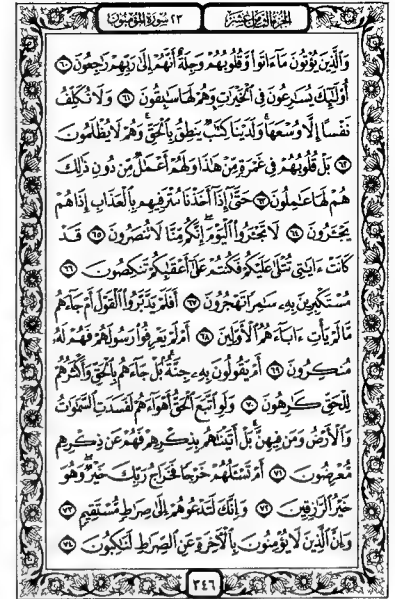 الجزء الثامن عشر
٢٣ سورة المؤمنون
وَٱلَّذِينَ يُؤْتُونَ مَآ ءَاتَوا۟ وَّقُلُوبُهُمْ وَجِلَةٌ أَنَّهُمْ إِلَىٰ رَبِّهِمْ رَٰجِعُونَ ٦٠
أُو۟لَـٰٓئِكَ يُسَـٰرِعُونَ فِى ٱلْخَيْرَٰتِ وَهُمْ لَهَا سَـٰبِقُونَ ٦١ وَلَا نُكَلِّفُ
نَفْسًا إِلَّا وُسْعَهَا وَلَدَيْنَا كِتَـٰبٌ يَنطِقُ بِٱلْحَقِّ وَهُمْ لَا يُظْلَمُونَ
٦٢ بَلْ قُلُوبُهُمْ فِى غَمْرَةٍ مِّنْ هَـٰذَا وَلَهُمْ أَعْمَـٰلٌ مِّن دُونِ ذَٰلِكَ
هُمْ لَهَا عَـٰمِلُونَ ٦٣ حَتَّىٰٓ إِذَآ أَخَذْنَا مُتْرَفِيهِم بِٱلْعَذَابِ إِذَا هُمْ
يَجْـَٔرُونَ ٦٤ لَا تَجْـَٔرُوا۟ ٱلْيَوْمَ إِنَّكُم مِّنَّا لَا تُنصَرُونَ ٦٥ قَدْ
كَانَتْ ءَايَـٰتِى تُتْلَىٰ عَلَيْكُمْ فَكُنتُمْ عَلَىٰٓ أَعْقَـٰبِكُمْ تَنكِصُونَ ٦٦
مُسْتَكْبِرِينَ بِهِۦ سَـٰمِرًا تَهْجُرُونَ ٦٧ أَفَلَمْ يَدَّبَّرُوا۟ ٱلْقَوْلَ أَمْ جَآءَهُم
مَّا لَمْ يَأْتِ ءَابَآءَهُمُ ٱلْأَوَّلِينَ ٦٨ أَمْ لَمْ يَعْرِفُوا۟ رَسُولَهُمْ فَهُمْ لَهُۥ
مُنكِرُونَ ٦٩ أَمْ يَقُولُونَ بِهِۦ جِنَّةٌۢ بَلْ جَآءَهُم بِٱلْحَقِّ وَأَكْثَرُهُمْ
لِلْحَقِّ كَـٰرِهُونَ ٧٠ وَلَوِ ٱتَّبَعَ ٱلْحَقُّ أَهْوَآءَهُمْ لَفَسَدَتِ ٱلسَّمَـٰوَٰتُ
وَٱلْأَرْضُ وَمَن فِيهِنَّ بَلْ أَتَيْنَـٰهُم بِذِكْرِهِمْ فَهُمْ عَن ذِكْرِهِم
مُّعْرِضُونَ ٧١ أَمْ تَسْـَٔلُهُمْ خَرْجًا فَخَرَاجُ رَبِّكَ خَيْرٌ وَهُوَ
خَيْرُ ٱلرَّٰزِقِينَ ٧٢ وَإِنَّكَ لَتَدْعُوهُمْ إِلَىٰ صِرَٰطٍ مُّسْتَقِيمٍ ٧٣
وَإِنَّ ٱلَّذِينَ لَا يُؤْمِنُونَ بِٱلْـَٔاخِرَةِ عَنِ ٱلصِّرَٰطِ لَنَـٰكِبُونَ ٧٤
٣٤٦